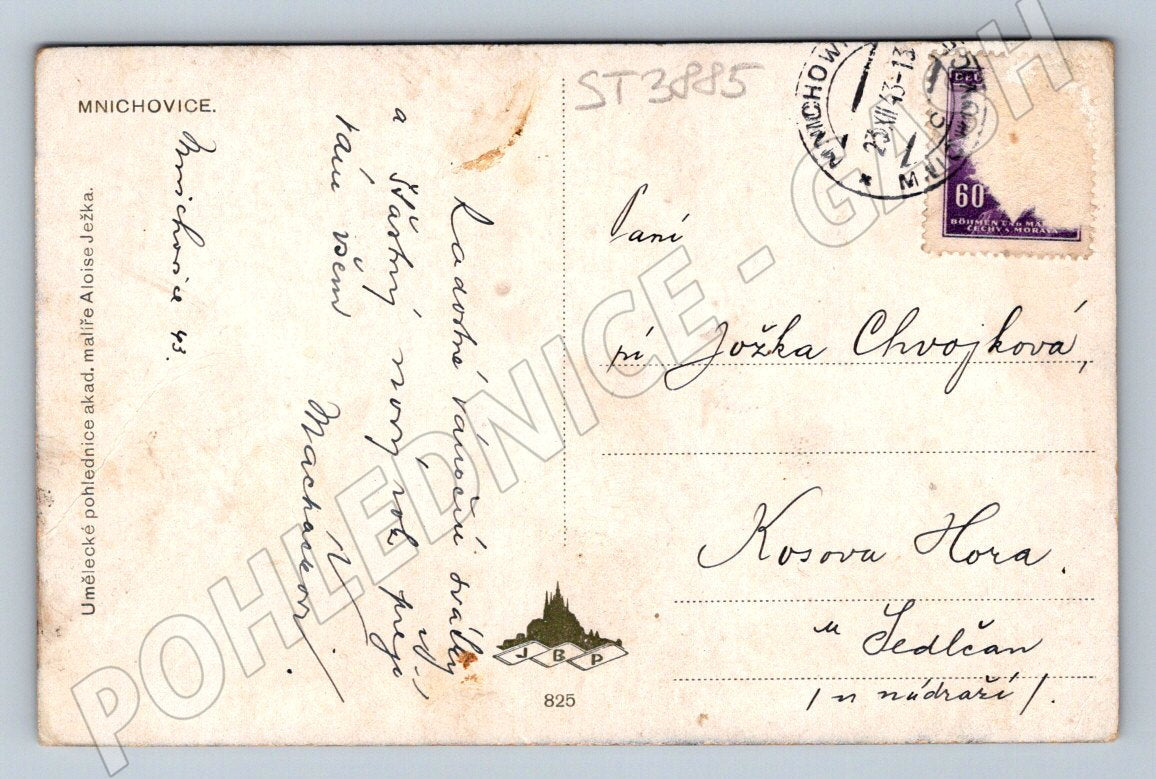 MNICHOVICE.
Umělecké pohlednice akad. malíře Aloise Ježka.
Mnichovice 43.
Radostné vánoční svátky
a šťastný nový rok přejí
vám všem
Macháčkovi.
JBP
825
ST3885
MNICHOW
23.XII.43-13
60
BÖHMEN UND MÄ
ČECHY A MORAVA
Paní
pí Jožka Chvojková,
Kosova Hora.
u Sedlčan
/u nádraží/.
POHLEDNICE - GASH